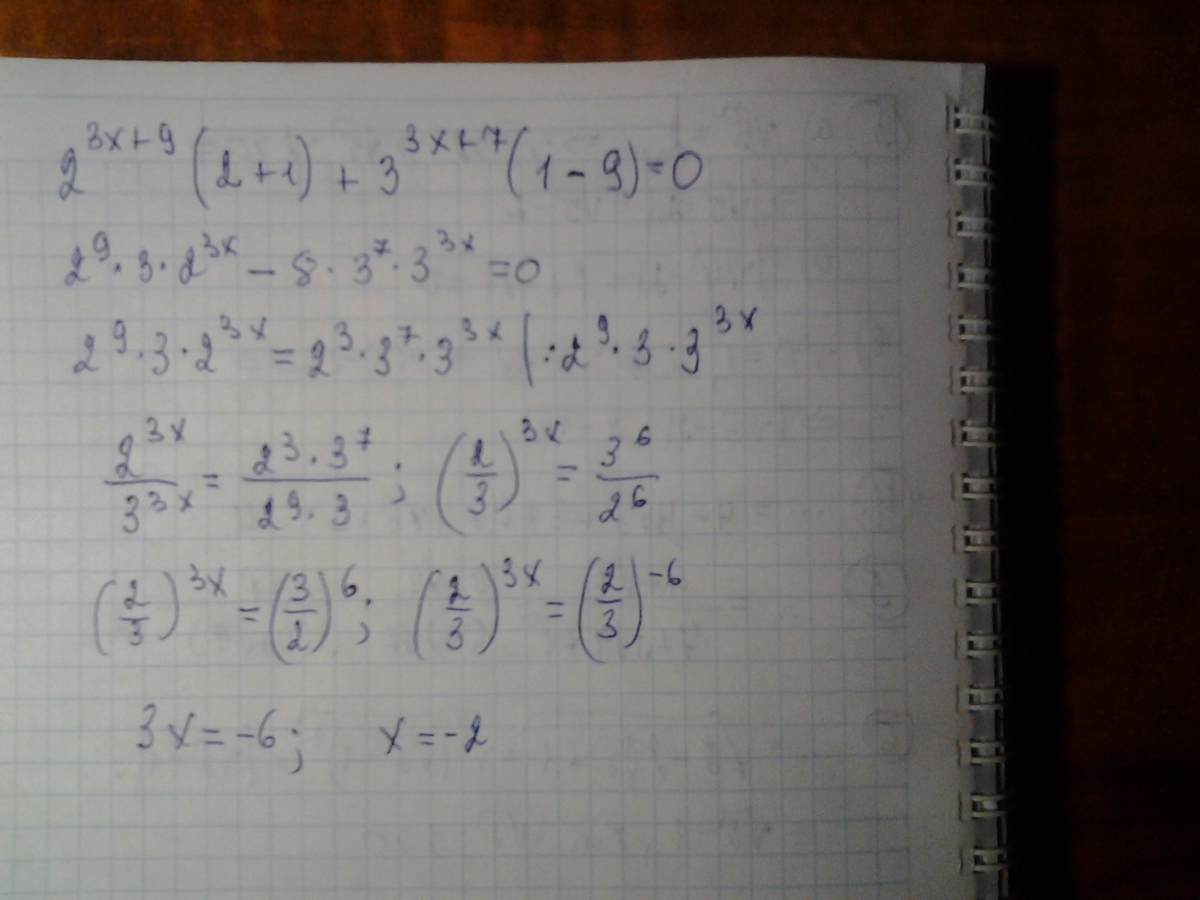 2^{3x+9} (2+1) + 3^{3x+7} (1-9) = 0
2^9 · 3 · 2^{3x} - 8 · 3^7 · 3^{3x} = 0
2^9 · 3 · 2^{3x} = 2^3 · 3^7 · 3^{3x} | : 2^9 · 3 · 3^{3x}
\frac{2^{3x}}{3^{3x}} = \frac{2^3 · 3^7}{2^9 · 3} ; (\frac{2}{3})^{3x} = \frac{3^6}{2^6}
(\frac{2}{3})^{3x} = (\frac{3}{2})^6 ; (\frac{2}{3})^{3x} = (\frac{2}{3})^{-6}
3x = -6 ; x = -2